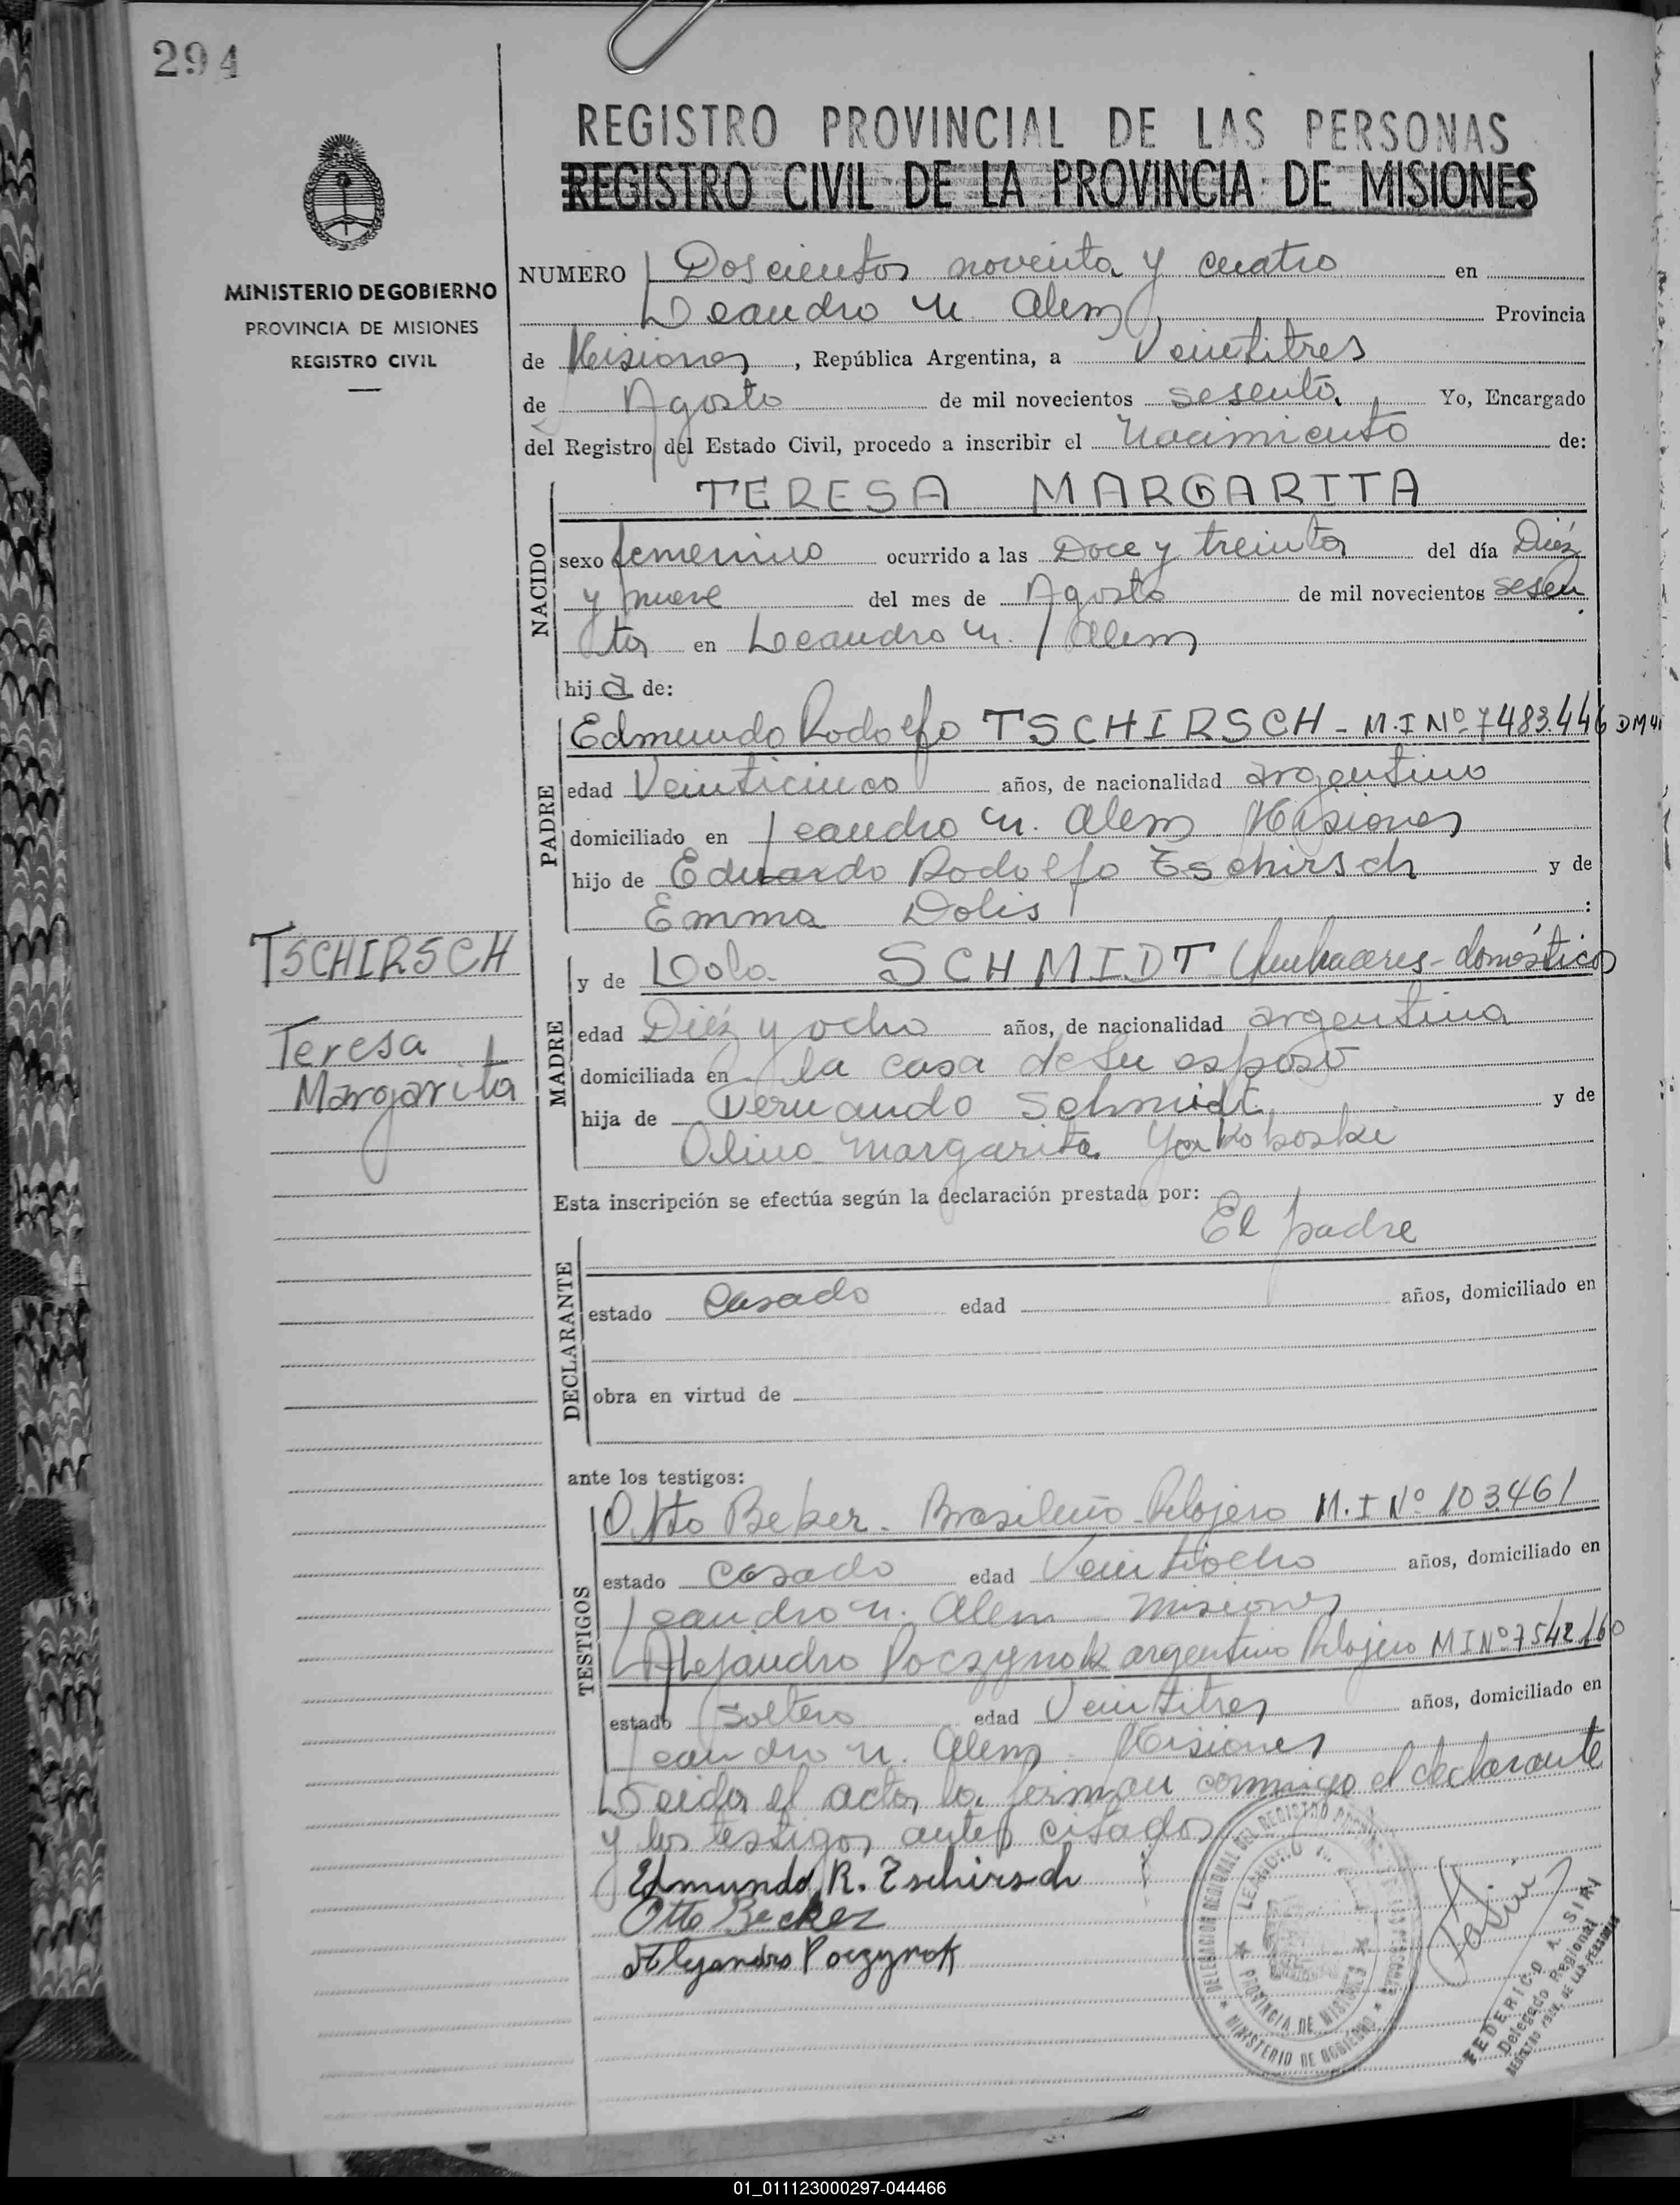 294
REGISTRO PROVINCIAL DE LAS PERSONAS
REGISTRO CIVIL DE LA PROVINCIA DE MISIONES
MINISTERIO DE GOBIERNO
PROVINCIA DE MISIONES
REGISTRO CIVIL
NUMERO Doscientos noventa y cuatro en
Leandro N. Alem, Provincia
de Misiones, República Argentina, a Veintitres
de Agosto de mil novecientos sesenta, Yo, Encargado
del Registro del Estado Civil, procedo a inscribir el Nacimiento de:
TERESA MARGARITA
NACIDO
sexo femenino ocurrido a las Doce y treinta del día Diéz
y nueve del mes de Agosto de mil novecientos sesen
ta en Leandro N. Alem
hija de:
PADRE
Edmundo Rodolfo TSCHIRSCH - M.I Nº 7483.446 DM 41
edad Veinticinco años, de nacionalidad argentino
domiciliado en Leandro N. Alem Misiones
hijo de Eduardo Rodolfo Tschirsch y de
Emma Dolis :
TSCHIRSCH
Teresa
Margarita
MADRE
y de Lola SCHMIDT Quehaceres-domésticos
edad Diéz y ocho años, de nacionalidad argentina
domiciliada en la casa de su esposo
hija de Bernando Schmidt y de
Olina Margarita
Esta inscripción se efectúa según la declaración prestada por:
El padre
DECLARANTE
estado Casado edad años, domiciliado en
obra en virtud de
ante los testigos:
TESTIGOS
Otto Beker. Brasileño-Relojero M.I Nº 103.461
estado casado edad Veintiocho años, domiciliado en
Leandro N. Alem Misiones
Alejandro Poczynok argentino Relojero M I Nº 7542160
estado soltero edad Veintitres años, domiciliado en
Leandro N. Alem - Misiones
Leida el acta, la firman conmigo el declarante
y los testigos antes citados
Edmundo R. Tschirsch
Otto Becker
Alejandro Poczynok
DELEGACION REGIONAL DEL REGISTRO PROVINCIAL DE LAS PERSONAS
LEANDRO N. ALEM
PROVINCIA DE MISIONES
MINISTERIO DE GOBIERNO
FEDERICO A. SIRI
Delegado Regional
REGISTRO PROV. DE LAS PERSONAS
01_011123000297-044466